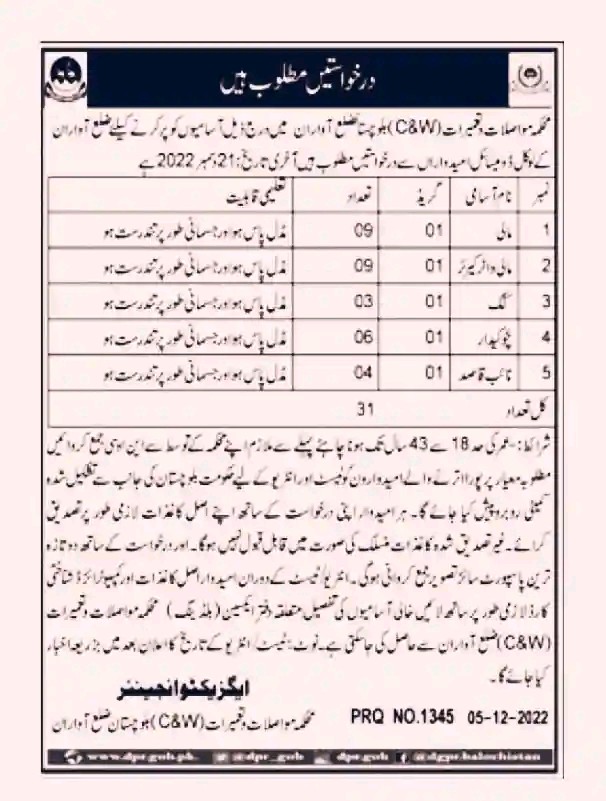 درخواستیں مطلوب ہیں
محکمہ مواصلات و تعمیرات (C&W) بلوچستان ضلع آواران میں درج ذیل آسامیوں کو پر کرنے کیلئے ضلع آواران
کے لوکل ڈومیسائل امیدواراں سے درخواستیں مطلوب ہیں آخری تاریخ: 21 دسمبر 2022 ہے
نمبر نام آسامی گریڈ تعداد تعلیمی قابلیت
1 مالی 01 09 مڈل پاس ہو اور جسمانی طور پر تندرست ہو
2 مالی واٹر کیرئر 01 09 مڈل پاس ہو اور جسمانی طور پر تندرست ہو
3 کک 01 03 مڈل پاس ہو اور جسمانی طور پر تندرست ہو
4 چوکیدار 01 06 مڈل پاس ہو اور جسمانی طور پر تندرست ہو
5 نائب قاصد 01 04 مڈل پاس ہو اور جسمانی طور پر تندرست ہو
کل تعداد 31
شرائط:- عمر کی حد 18 سے 43 سال تک ہونا چاہئے پہلے سے ملازم اپنے محکمہ کے توسط سے این او سی جمع کروائیں
مطلوبہ معیار پر پورا اترنے والے امیدوارون کو ٹیسٹ اور انٹریو کے لیے حکومت بلوچستان کی جانب سے تشکیل شدہ
کمیٹی روبرو پیش کیا جائے گا۔ ہر امیدوار اپنی درخواست کے ساتھ اپنے اصل کاغذات لازمی طور پر تصدیق
کرائے۔ غیر تصدیق شدہ کاغذات منسلک کی صورت میں قابل قبول نہیں ہوگا۔ اور درخواست کے ساتھ دو تازہ
ترین پاسپورٹ سائز تصویر جمع کروانی ہوگی۔ انٹریو/ٹیسٹ کے دوران امیدوار اصل کاغذات اور کمپیٹرائزڈ شناختی
کارڈ لازمی طور پر ساتھ لائیں خالی آسامیوں کی تفصیل متعلقہ دفتر ایکسین (بلڈنگ) محکمہ مواصلات و تعمیرات
(C&W) ضلع آواران سے حاصل کی جاسکتی ہے۔ نوٹ:- ٹیسٹ/انٹریو کے تاریخ کا اعلان بعد میں بزریعہ اخبار
کیا جائے گا۔
ایگزیکٹو انجینئر
محکمہ مواصلات و تعمیرات (C&W) بلوچستان ضلع آواران PRQ NO.1345 05-12-2022
www.dpr.gob.pk @dpr_gob dpr.gob @dgpr.balochistan